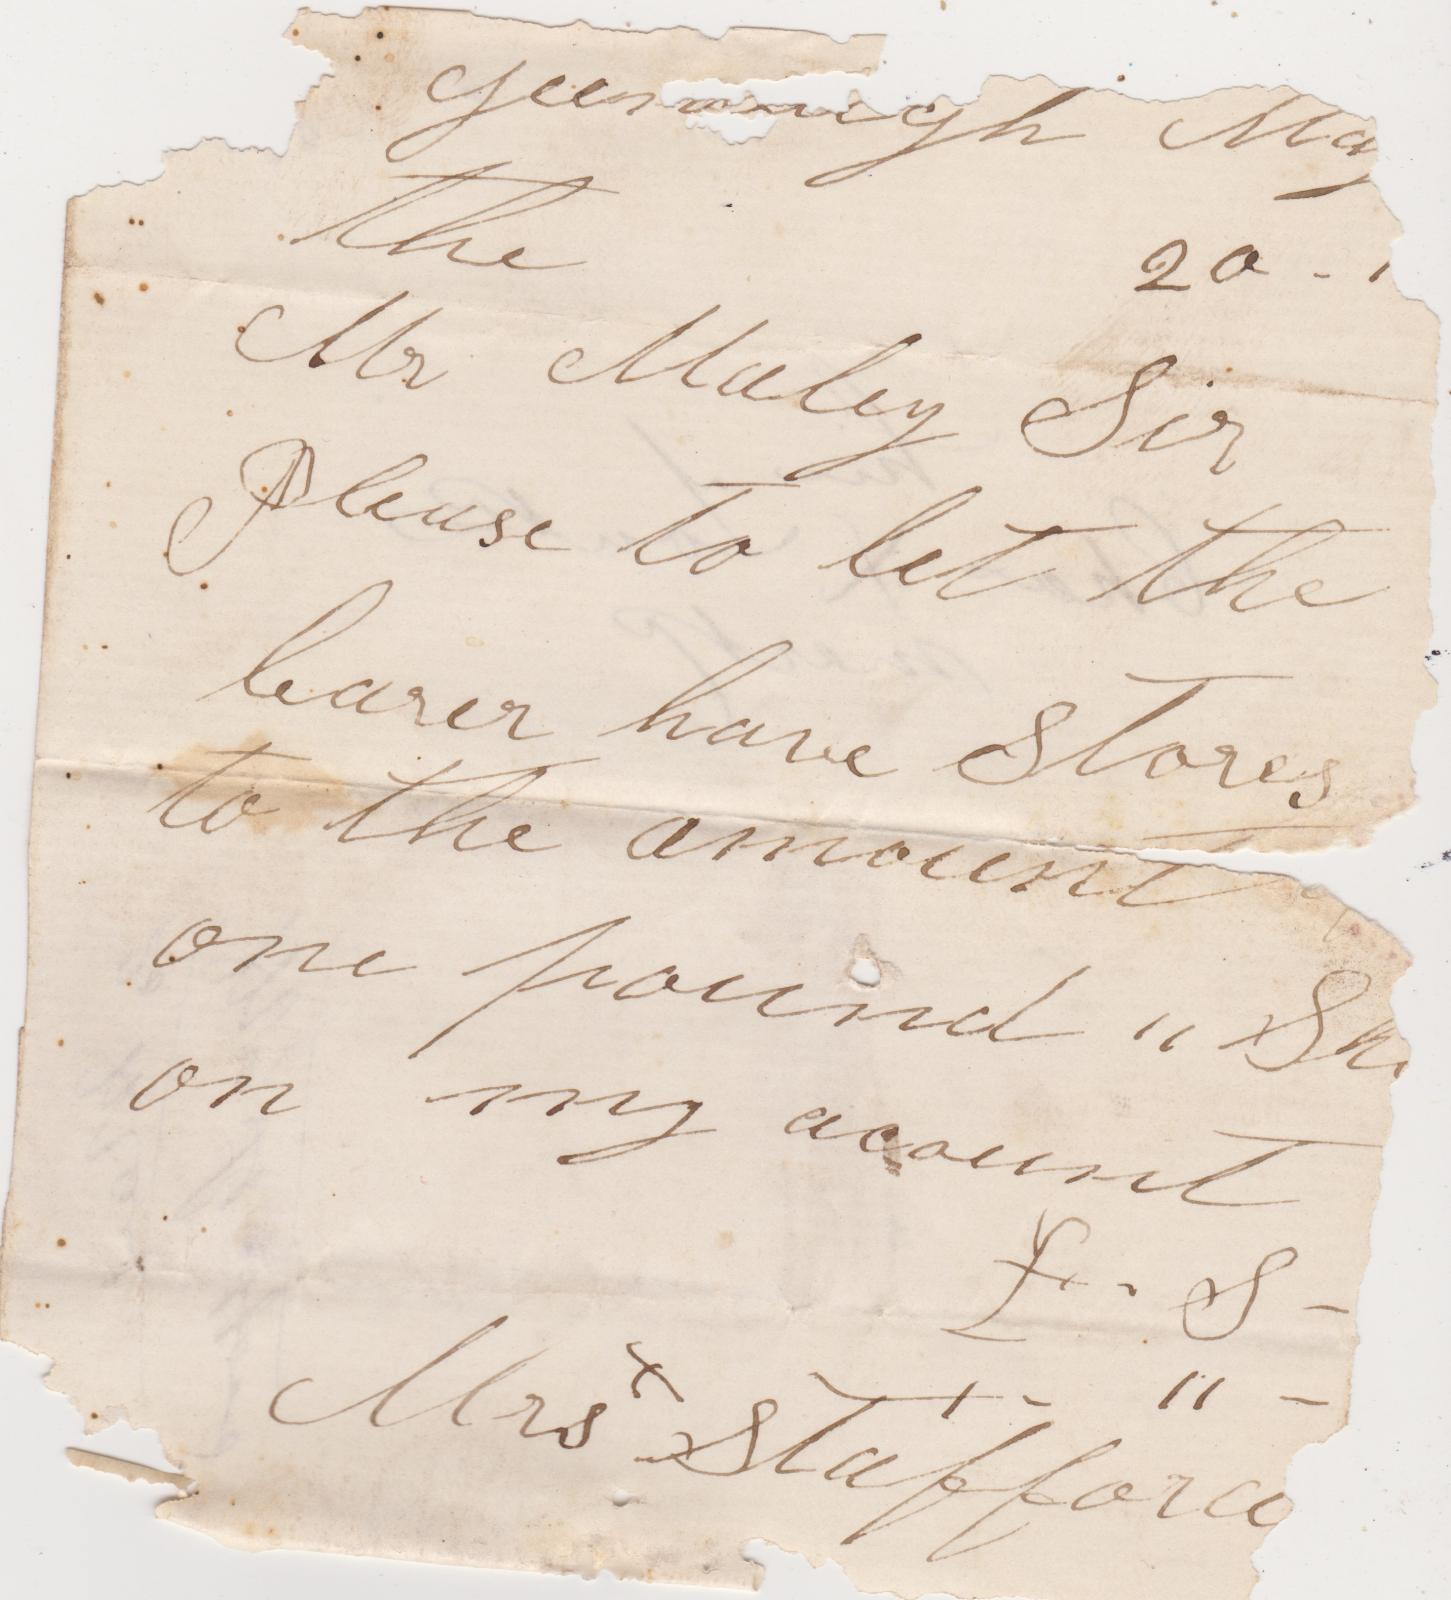 May
the 20 -
Mr Maley Sir
Please to let the
bearer have Stores
to the amount
one pound " Sh
on my acount
£ - S -
1 - " -
Mrs x Stafford